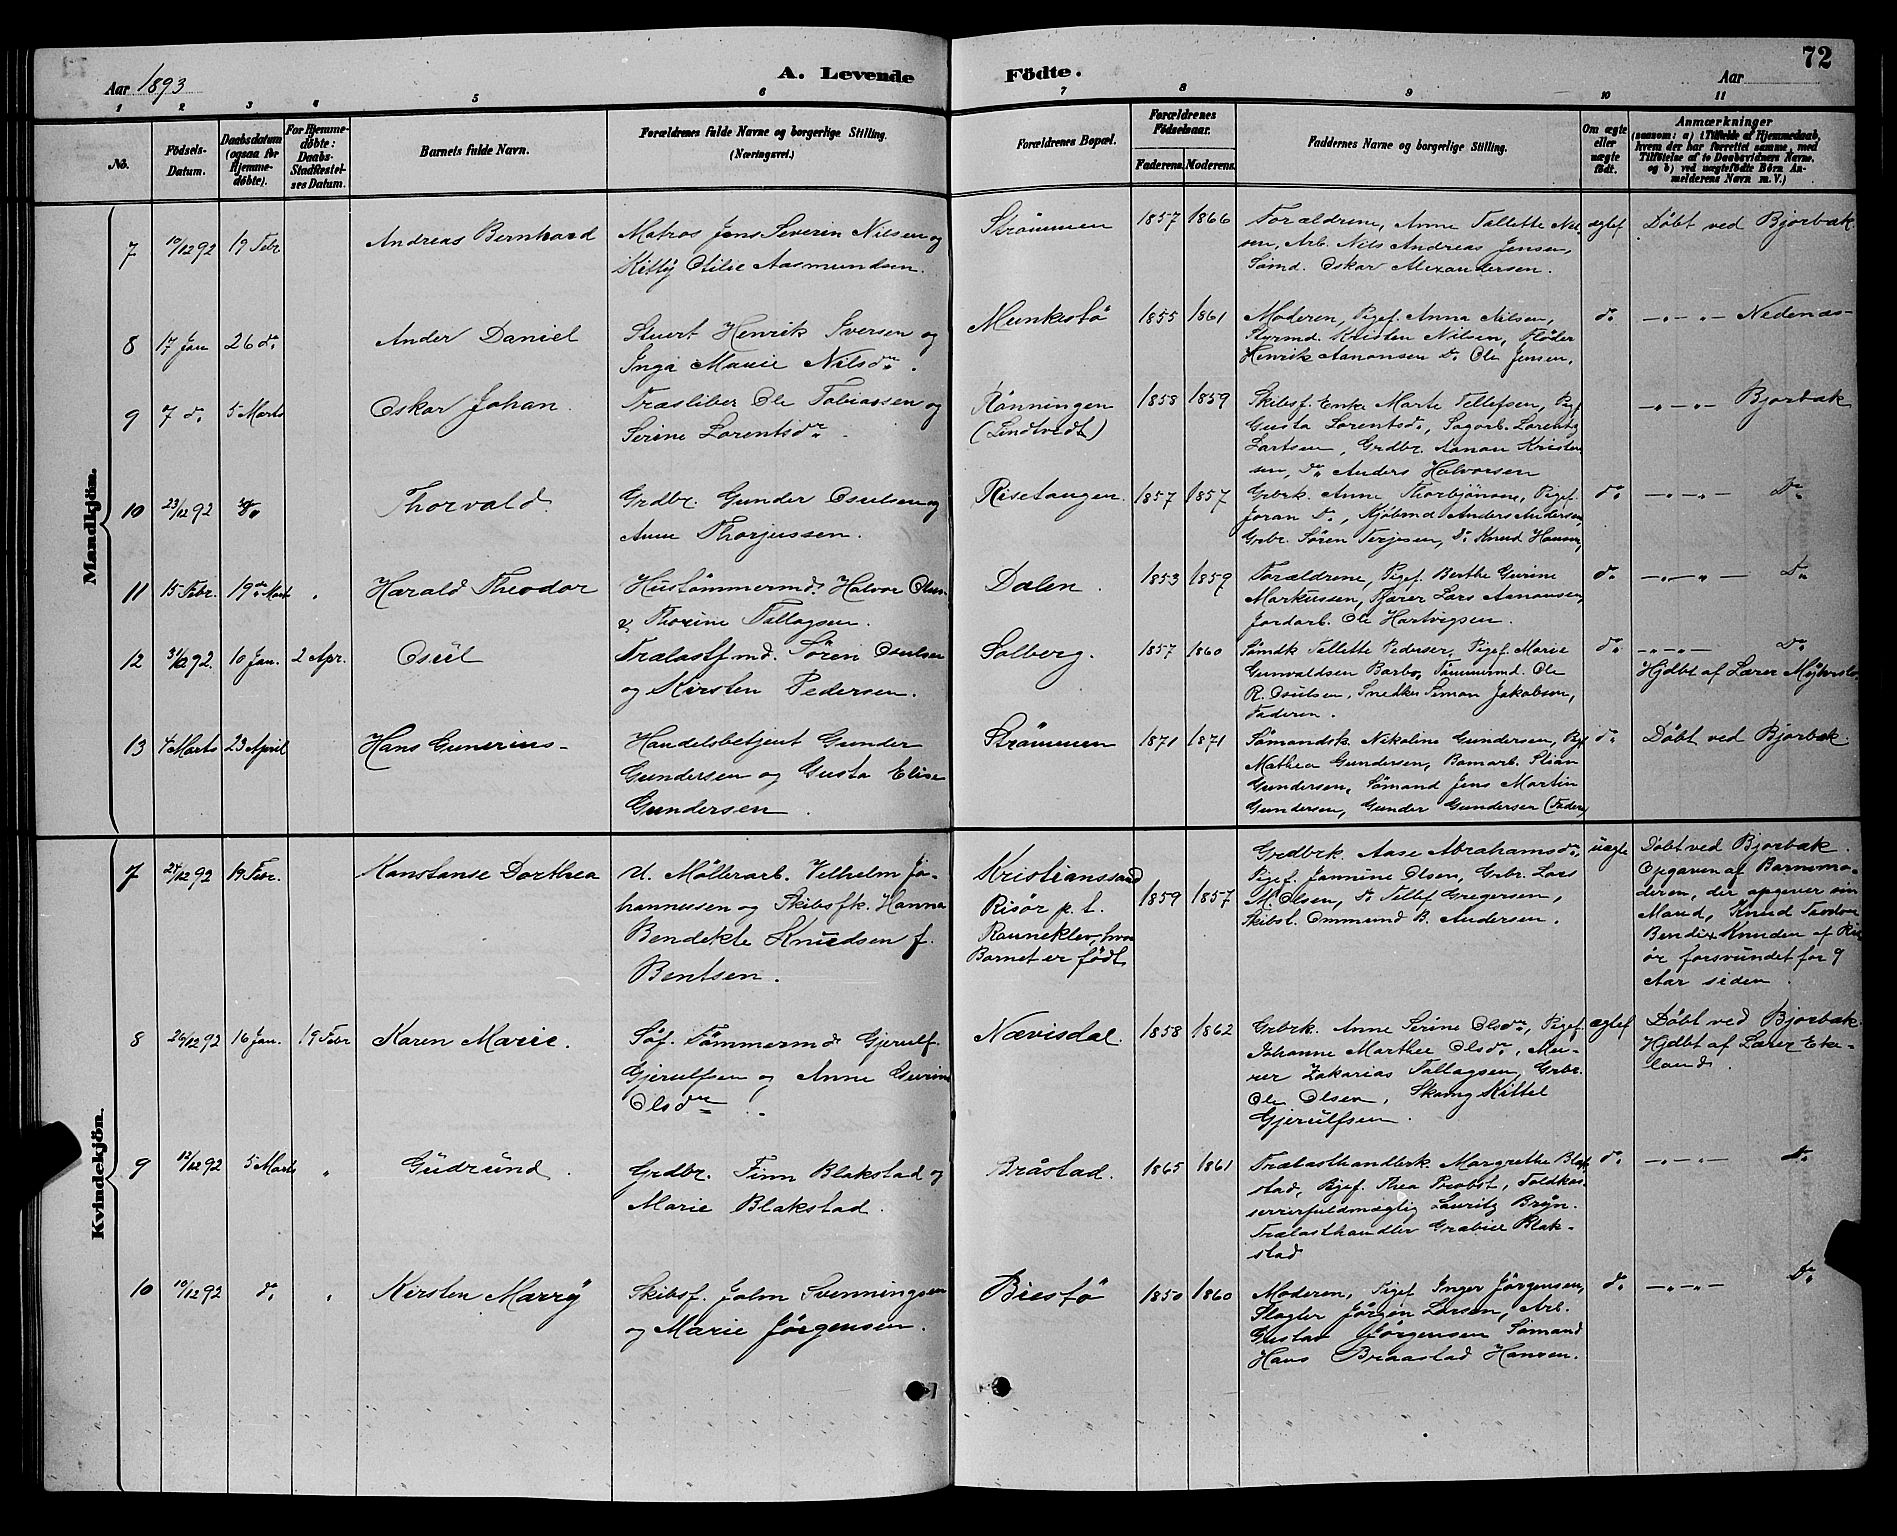 72
Aar 1893
A. Levende Födte.
Aar
1 2 3 4 5 6 7 8 9 10 11
No.
Födsels-
Datum.
Daabsdatum
(ogsaa for
Hjemme-
döbte).
For Hjemme-
döbte:
Daabs-
Stadfæstel-
ses Datum.
Barnets fulde Navn.
Forældrenes fulde Navne og borgerlige Stilling.
(Næringsvei.)
Forældrenes Bopæl.
Forældrenes
Födselsaar.
Faderens. Moderens.
Faddernes Navne og borgerlige Stilling.
Om ægte
eller
uægte
födt.
Anmærkninger
(saasom: a) i Tilfælde af Hjemmedaab,
hvem der har forrettet samme, med
Tilföielse af to Daabsvidners Navne,
og b) ved uægtefödte Börn An-
melderens Navn m. V.)
Mandkjön.
7 10/12 92 19 Febr Andreas Bernhard
Matros Jens Severin Nilsen og
Kitty Otilie Aasmundsen.
Strömmen 1857 1866
Forældrene, Anne Tallette Nil
sen, Arb. Nils Andreas Jensen,
Sömd. Oskar Alexandersen.
ægtef Döbt ved Bjorbæk
8 17 Jan 26 do Ander Daniel
Stuert Henrik Iversen og
Inga Marie Nilsdr.
Munkestö 1855 1861
Moderen, Pigef. Anna Nilsen,
Styrmd. Kristen Nilsen, Flöder
Henrik Aanonsen Do Ole Jensen.
do —„— Nedenæs-
9 7 do 5 Marts Oskar Johan.
Træsliber Ole Tobiassen og
Serine Lorentsdr.
Rönningen
(Lindtvedt) 1858 1859
Skibsf. Enke Marte Tellefsen, Pgf
Gusta Lorentsdr, Sagarb. Lorentz
Lartsen, Grdbr. Aanon Kristen
sen, do Anders Halvorsen
—„— Bjorbæk
10 23/12 92 Do Thorvald.
Grdbr. Gunder Osulsen og
Anne Thorjussen.
Risetangen. 1857 1857
Grbrk. Anne Thorbjönsen, Pigef.
Joran Do, Kjöbmd Anders Andersen,
Grbr. Sören Terjesen, Do Knud Hansen,
do —„— Do
11 15 Febr. 19de Mart „ Harald Theodor
Hustömmermd. Halvor Olsen
& Thorine Tallagsen.
Dalen. 1853 1859
Forældrene, Pigef. Berthe Gurine
Markussen, Farer Lars Aanonsen,
Jordarb. Ole Hartvigsen.
do —„— Do
12 31/12 92. 10 Jan. 2 Apr. Osul
Trælastfmd. Sören Osulsen
og Kirsten Pedersen.
Solberg. 1857 1860
Sömdk Tellette Pedersen, Pigef. Marie
Gunvaldsen Barbo, Tömmermd. Ole
R. Osulsen, Snedker Simon Jakobsen,
Faderen.
do —„— Do
Hjdbt af Lærer
13 4 Marts 23 April Hans Gunerius-
Handelsbetjent Gunder
Gundersen og Gusta Elise
Gundersen.
Strömmen 1871 1871
Sömandsk. Nikoline Gundersen, Pgf
Mathea Gundersen, Bomarb. Stian
Gundersen, Sömand Jens Martin
Gundersen, Gunder Gundersen (Faderen)
do Döbt ved Bjorbæk.
Kvindekjön.
7 24/12 92 19 Febr. Konstanse Dorthea
U. Möllerarb. Vilhelm Jo-
hannessen og Skibsfk. Hanna
Bendikte Knudsen f.
Bentsen.
Kristianssand
Risör p.t.
Rauneklev, hvor
Barnet er födt. 1859 1857
Grdbrk. Aase Abrahamsdr,
Pigef. Jannine Olsen, Grbr. Lars
M. Olsen, Do Tellef Gregersen,
Skibst. Ommund B. Andersen.
uægte Döbt ved Bjorbæk.
Opgaven af Barnemo-
deren, der opgiver sin
Mand, Knud Teodor
Bendix Knudsen af Ris
ör forsvundet for 9
Aar siden.
8 26/12 92 16 Jan. 19 Febr Karen Marie.
Söf. Tömmermd Gjerulf
Gjerulfsen og Anne Gurine
Olsdr
Nævisdal. 1858 1862
Grbrk. Anne Serine Olsdr, Pigef.
Johanne Marthee Olsdr, Mu-
rer Zakarias Tallagsen, Grbr.
Ole Olsen, Skomg Kittel
Gjerulfsen.
ægtef Döbt ved Bjorbæk.
Hjdbt af Lærer Eke-
land.
9 12/12 92 5 Marts „ Gudrund.
Grdbr. Finn Blakstad og
Marie Blakstad.
Bråstad. 1865 1861
Trælasthandlerk. Margrethe Blak
stad, Pigef. Thea Probst, Toldkas
sererfuldmægtig Lauritz Bryn.
Trælasthandler Grabiel Blak-
stad
do —„— Do
10 10/12 92 do „ Kirsten Marry
Skibsf. John Svenningsen
og Marie Jörgensen.
Biestö 1850 1860
Moderen, Pigef Inger Jörgensen,
Slagter Jörgen Larsen, Arb.
Gustav Jörgensen Sömand
Hans Braastad Hansen.
do —„— Do